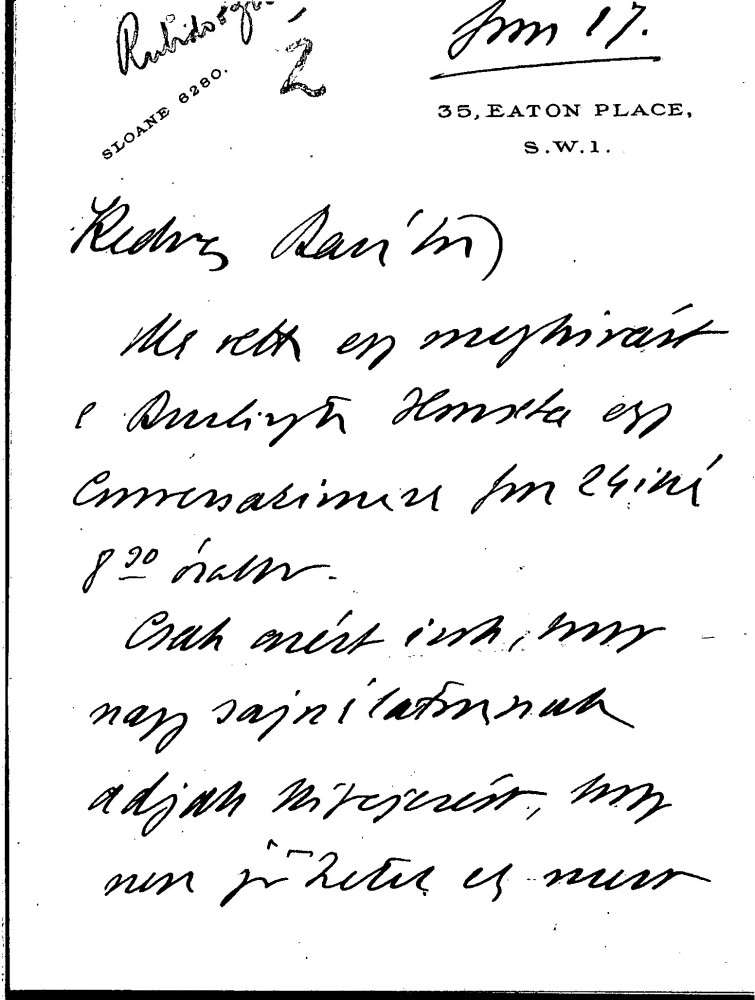 2
Jun 17.
SLOANE 6280.
35, EATON PLACE,
S.W.1.
Kedves Barátom
Ma vettem egy meghivást
a Burlington Houseba egy
Conversazionera Jun 24iké
8 30 órakor.
Csak azért irok, hogy
nagy sajnálatomnak
adjak kifejezést, hogy
nem jöhetek el mert